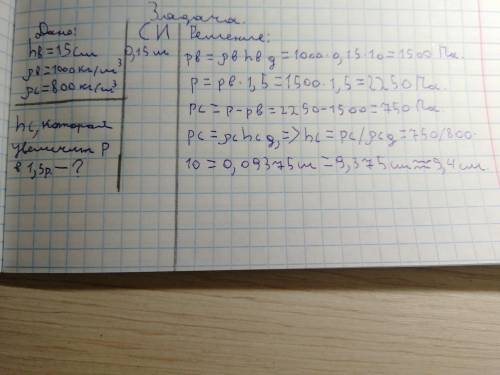 Задача.
Дано:
hв=15см
ρв=1000кг/м³
ρс=800кг/м³
hс, которая
увеличит P
в 1,5р.—?
СИ
0,15м
Решение:
pв=ρв hв g=1000·0,15·10=1500 Па.
p=pв·1,5=1500·1,5=2250 Па.
pс=p-pв=2250-1500=750 Па.
pс=ρс hс g,=>hс=pс/ρс g=750/800·
10=0,09375м=9,375см≈9,4см.